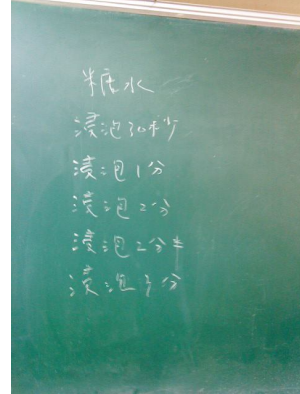 糖水
浸泡30秒
浸泡1分
浸泡2分
浸泡2分半
浸泡3分